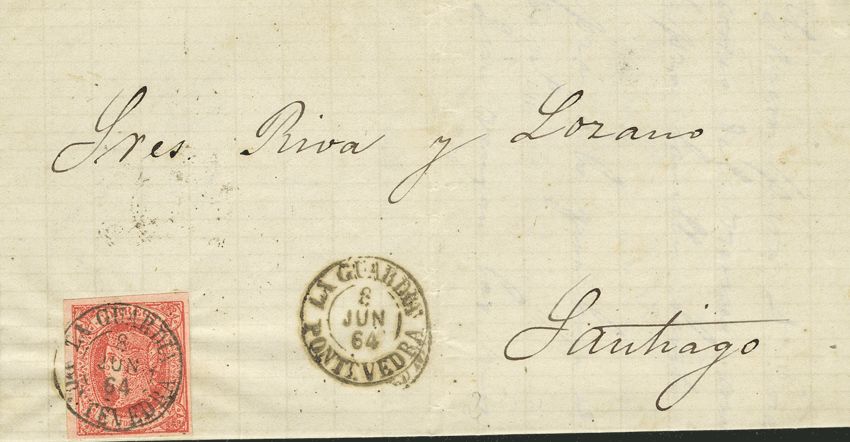 Sres. Riva y Lozano
Santiago
LA GUARDIA
8
JUN
64
PONTEVEDRA
LA GUARDIA
8
JUN
64